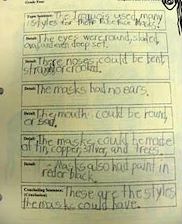 Grade Four
Topic Sentence: The Iroquois used many
styles for their
Detail: The eyes were round, slanted,
oval, and even deep set.
Detail: There noses could be bent,
straight or crooked.
Detail: The masks had no ears.
Detail: The mouth could be round,
or oval.
Detail: The mask could be made
of tin, copper, silver, and trees.
Detail: The masks also had paint in
red or black.
Concluding Sentence: These are the styles
(Conclusion)
the maske could have.